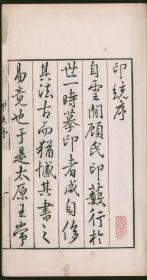 印統序
自雲間顧氏印藪行於
世一時摹印者咸自侈
其法古而猶憾其書之
易竟也于是太原王常